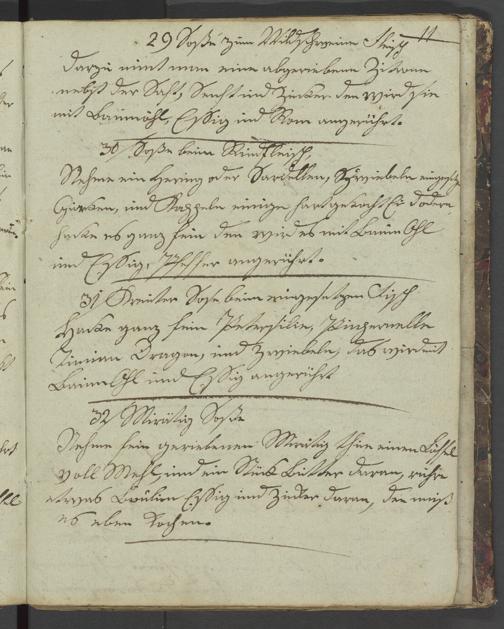 11
29 Soße zum Wildschweine Fleisch
Darzu nimt man eine abgeriebene Zitrone
nebst der Saft, Senf und Zucker den wird sie
mit Baumöhl, Essig und Rom angerührt.
30 Soße beim Rindfleisch,
Nehme ein Hering oder Sardellen, Zwiebeln eingesetzte
Gurken, und Kappeln einige hartgekochte Eier dodern
hacke es ganz fein den wird es mit Baum Ohl
und Essig, Pfeffer angerührt.
31 Kreuter Soße beim eingesetzen Fisch
Hacke ganz fein Petersilie, Pimpernelle
Timian Dragon, und Zwiebeln, das wird mit
Baum Ohl und Essig angerührt
32 Mirätig Soße
Nehme fein geriebenen Mirätig thue einen Löffel
voll Mehl und ein Stück Butter daran, rühre
etwas Bullion Essig und Zucker daran, den muß
es eben kochen.